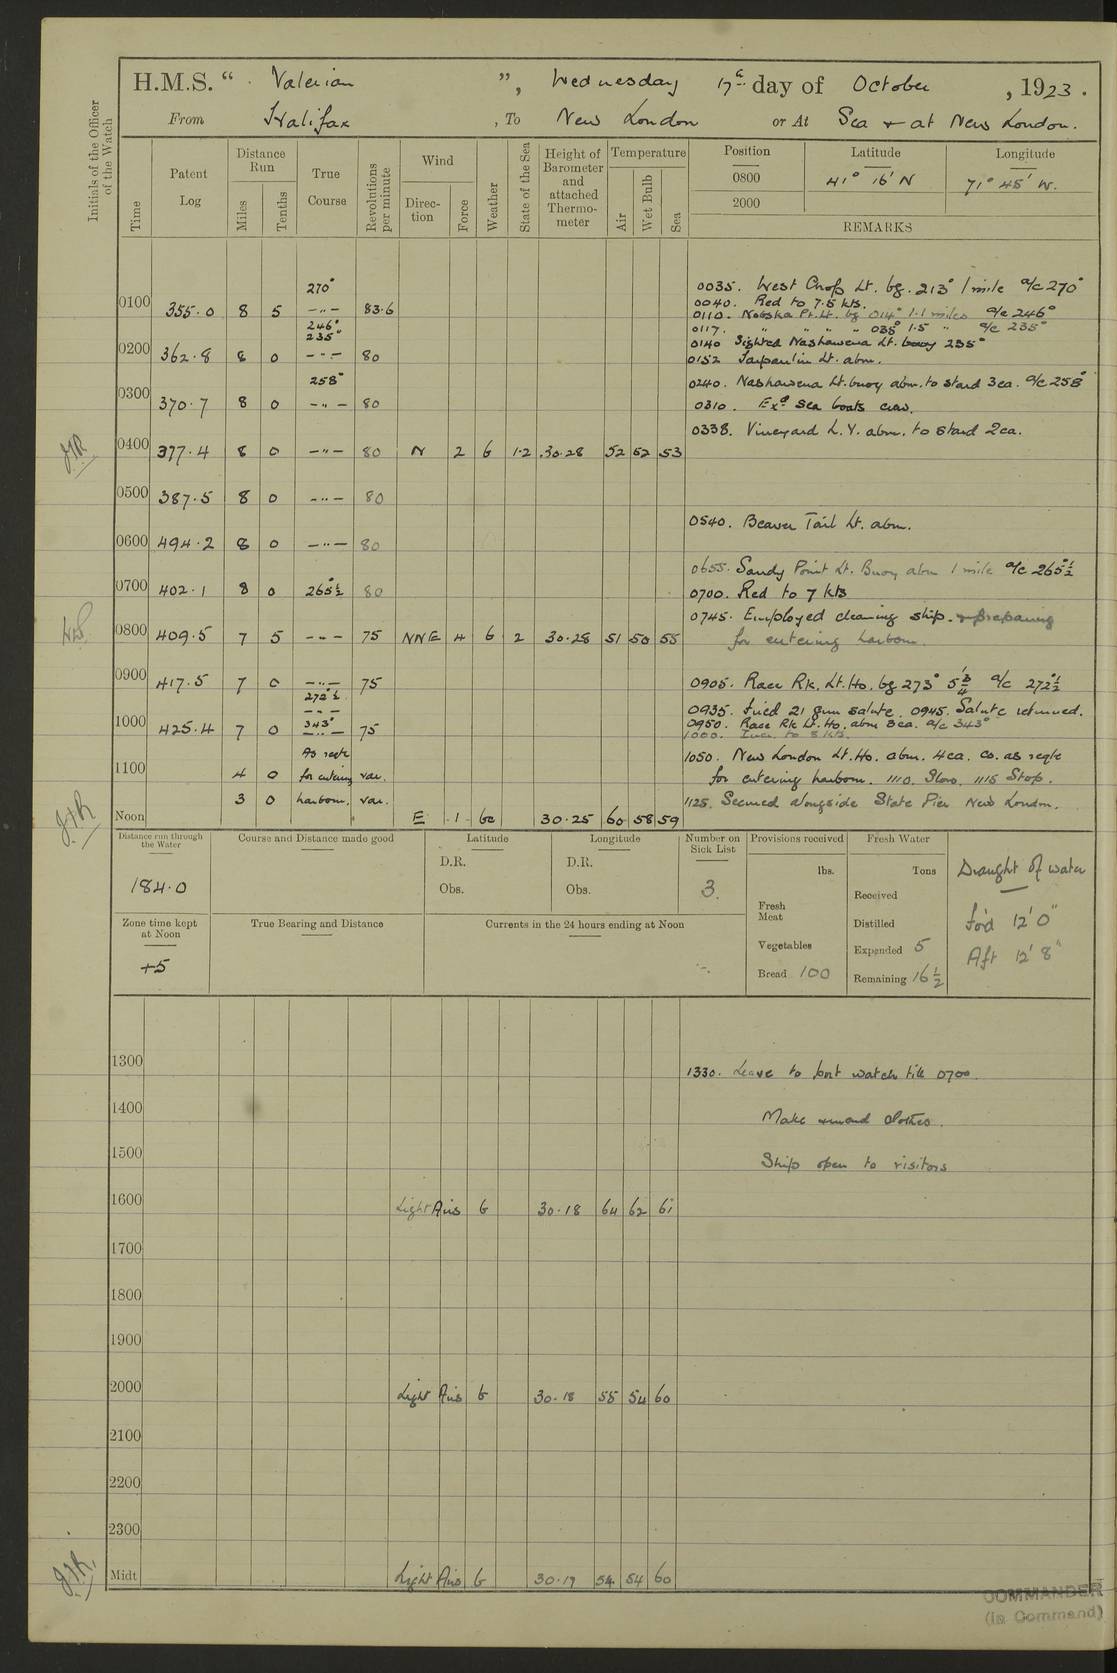 H.M.S. “ Valerian ”, Wednesday 17th day of October , 1923.
From Halifax , To New London or At Sea & at New London.
Initials of the Officer of the Watch
Time
Patent Log
Distance Run
Miles
Tenths
True Course
Revolutions per minute
Wind
Direction
Force
Weather
State of the Sea
Height of Barometer and attached Thermometer
Temperature
Air
Wet Bulb
Sea
Position Latitude Longitude
0800 41° 16' N 71° 45' W.
2000
REMARKS
270°
0035. West Chop Lt. bg. 213° 1 mile a/c 270°
0100 355.0 8 5 –"– 83.6
0040. Red to 7.5 kts.
246°
0110. Nobska Pt. Lt. bg 014° 1.1 miles a/c 246°
235°
0117. " " " " 035° 1.5 " a/c 235°
0140 Sighted Nashawena Lt. buoy 235°
0200 362.8 8 0 –"– 80
0152 Tarpaulin Lt. abm.
258°
0240. Nashawena Lt. buoy abm. to stard 3ca. a/c 258°
0300 370.7 8 0 –"– 80
0310. Exd sea boats crew.
0338. Vineyard L.V. abm. to stard 2ca.
0400 377.4 8 0 –"– 80 N 2 b 1.2 30.28 52 52 53
0500 387.5 8 0 –"– 80
0540. Beaver Tail Lt. abm.
0600 494.2 8 0 –"– 80
0655. Sandy Point Lt. Buoy abm 1 mile a/c 265°½
0700 402.1 8 0 265°½ 80
0700. Red to 7 kts
0745. Employed cleaning ship. & preparing
0800 409.5 7 5 –"– 75 NNE 4 b 2 30.28 51 50 55
for entering harbour.
0900 417.5 7 0 –"– 75
0905. Race Rk. Lt. Ho. bg 273° 5¾' a/c 272½°
272°½
–"–
0935. Fired 21 gun salute. 0945. Salute returned.
343°
0950. Race Rk Lt. Ho. abm 3ca. a/c 343°
1000 425.4 7 0 –"– 75
1000. Incr. to 8 kts.
As reqte
1050. New London Lt. Ho. abm. 4ca. Co. as reqte
1100 4 0 for entering var.
for entering harbour. 1110. Slow. 1115 Stop.
3 0 harbour. var.
1125. Secured alongside State Pier New London.
Noon E 1 bc 30.25 60 58 59
Distance run through the Water
184.0
Course and Distance made good
Latitude
D.R.
Obs.
Longitude
D.R.
Obs.
Number on Sick List
3.
Provisions received
lbs.
Fresh Meat
Vegetables
Bread 100
Fresh Water
Tons
Received
Distilled
Expended 5
Remaining 16½
Draught of water
For'd 12' 0"
Aft 12' 8"
Zone time kept at Noon
+5
True Bearing and Distance
Currents in the 24 hours ending at Noon
1300
1330. Leave to port watch till 0700.
1400
Make & mend clothes.
1500
Ship open to visitors
1600 Light Airs b 30.18 64 62 61
1700
1800
1900
2000 Light Airs b 30.18 55 54 60
2100
2200
2300
Midt Light Airs b 30.19 54 54 60
COMMANDER
(in Command)